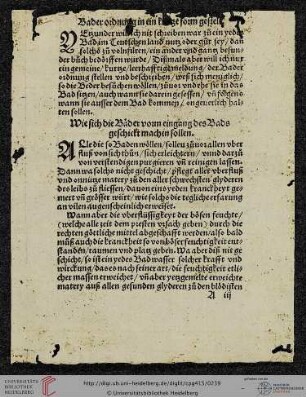 Bader ordnung in ein kurtze form gestelt.
Yetzunder will ich nit schreiben war zu ein yedes
Bad im Teutschen land nutz oder gut sey, dan
solchs zů volnfüren, ein ander und gantz besun-
der bůch bedörffen wurde, Dißmals aber will ich nur
ein gemeine kurtze leerhafft der Bader
ordnung stellen und beschreiben, weß sich menigklich
so der Beder besuchen wöllen, zůuor und ehe sie in das
Bad setzen, auch wann sie darein gesessen, und
wann sie ausser dem Bad kommen, ongeuerlich hal-
ten sollen.
Wie sich die Bäder vonn eingang des Bads
geschickt machen sollen.
ALle die so Baden wöllen, sollen zůuor allen vber
fluß von sich thůn, sich erleichtern, unnd dar zů
von verstendigen purgieren und reinigen lassen.
Dann wa solchs nicht geschicht, pflegt aller vberfluß
und onnütze matery zů den aller schwechsten glyderen
des leibs zů fliessen, dauon eins yeden kranckheyt ge-
mert und grösser würt, wie solchs die teglich erfarung
an vilen augenscheinlich erweiset.
Wann aber die vberflüssigkeyt der bösen feuchte,
(welche alle zeit dem presten vrsach geben) durch die
rechten göttliche mittel abgeschafft werden, also bald
můß auch die kranckheit so von böser feuchtigkeit ent-
standen, raumen und platz geben. Wa aber diß nit ge
schicht, so ist ein yedes Bad wasser solcher krafft und
wirckung, das es nach seiner art, die feuchtigkeit etli-
cher massen erweichet, und aber erweichte
matery auß allen gesunden glyderen zů den blödisten
A iij
UNIVERSITÄTS-
BIBLIOTHEK
HEIDELBERG
http://digi.ub.uni-heidelberg.de/diglit/cpg415/0239
© Universitätsbibliothek Heidelberg